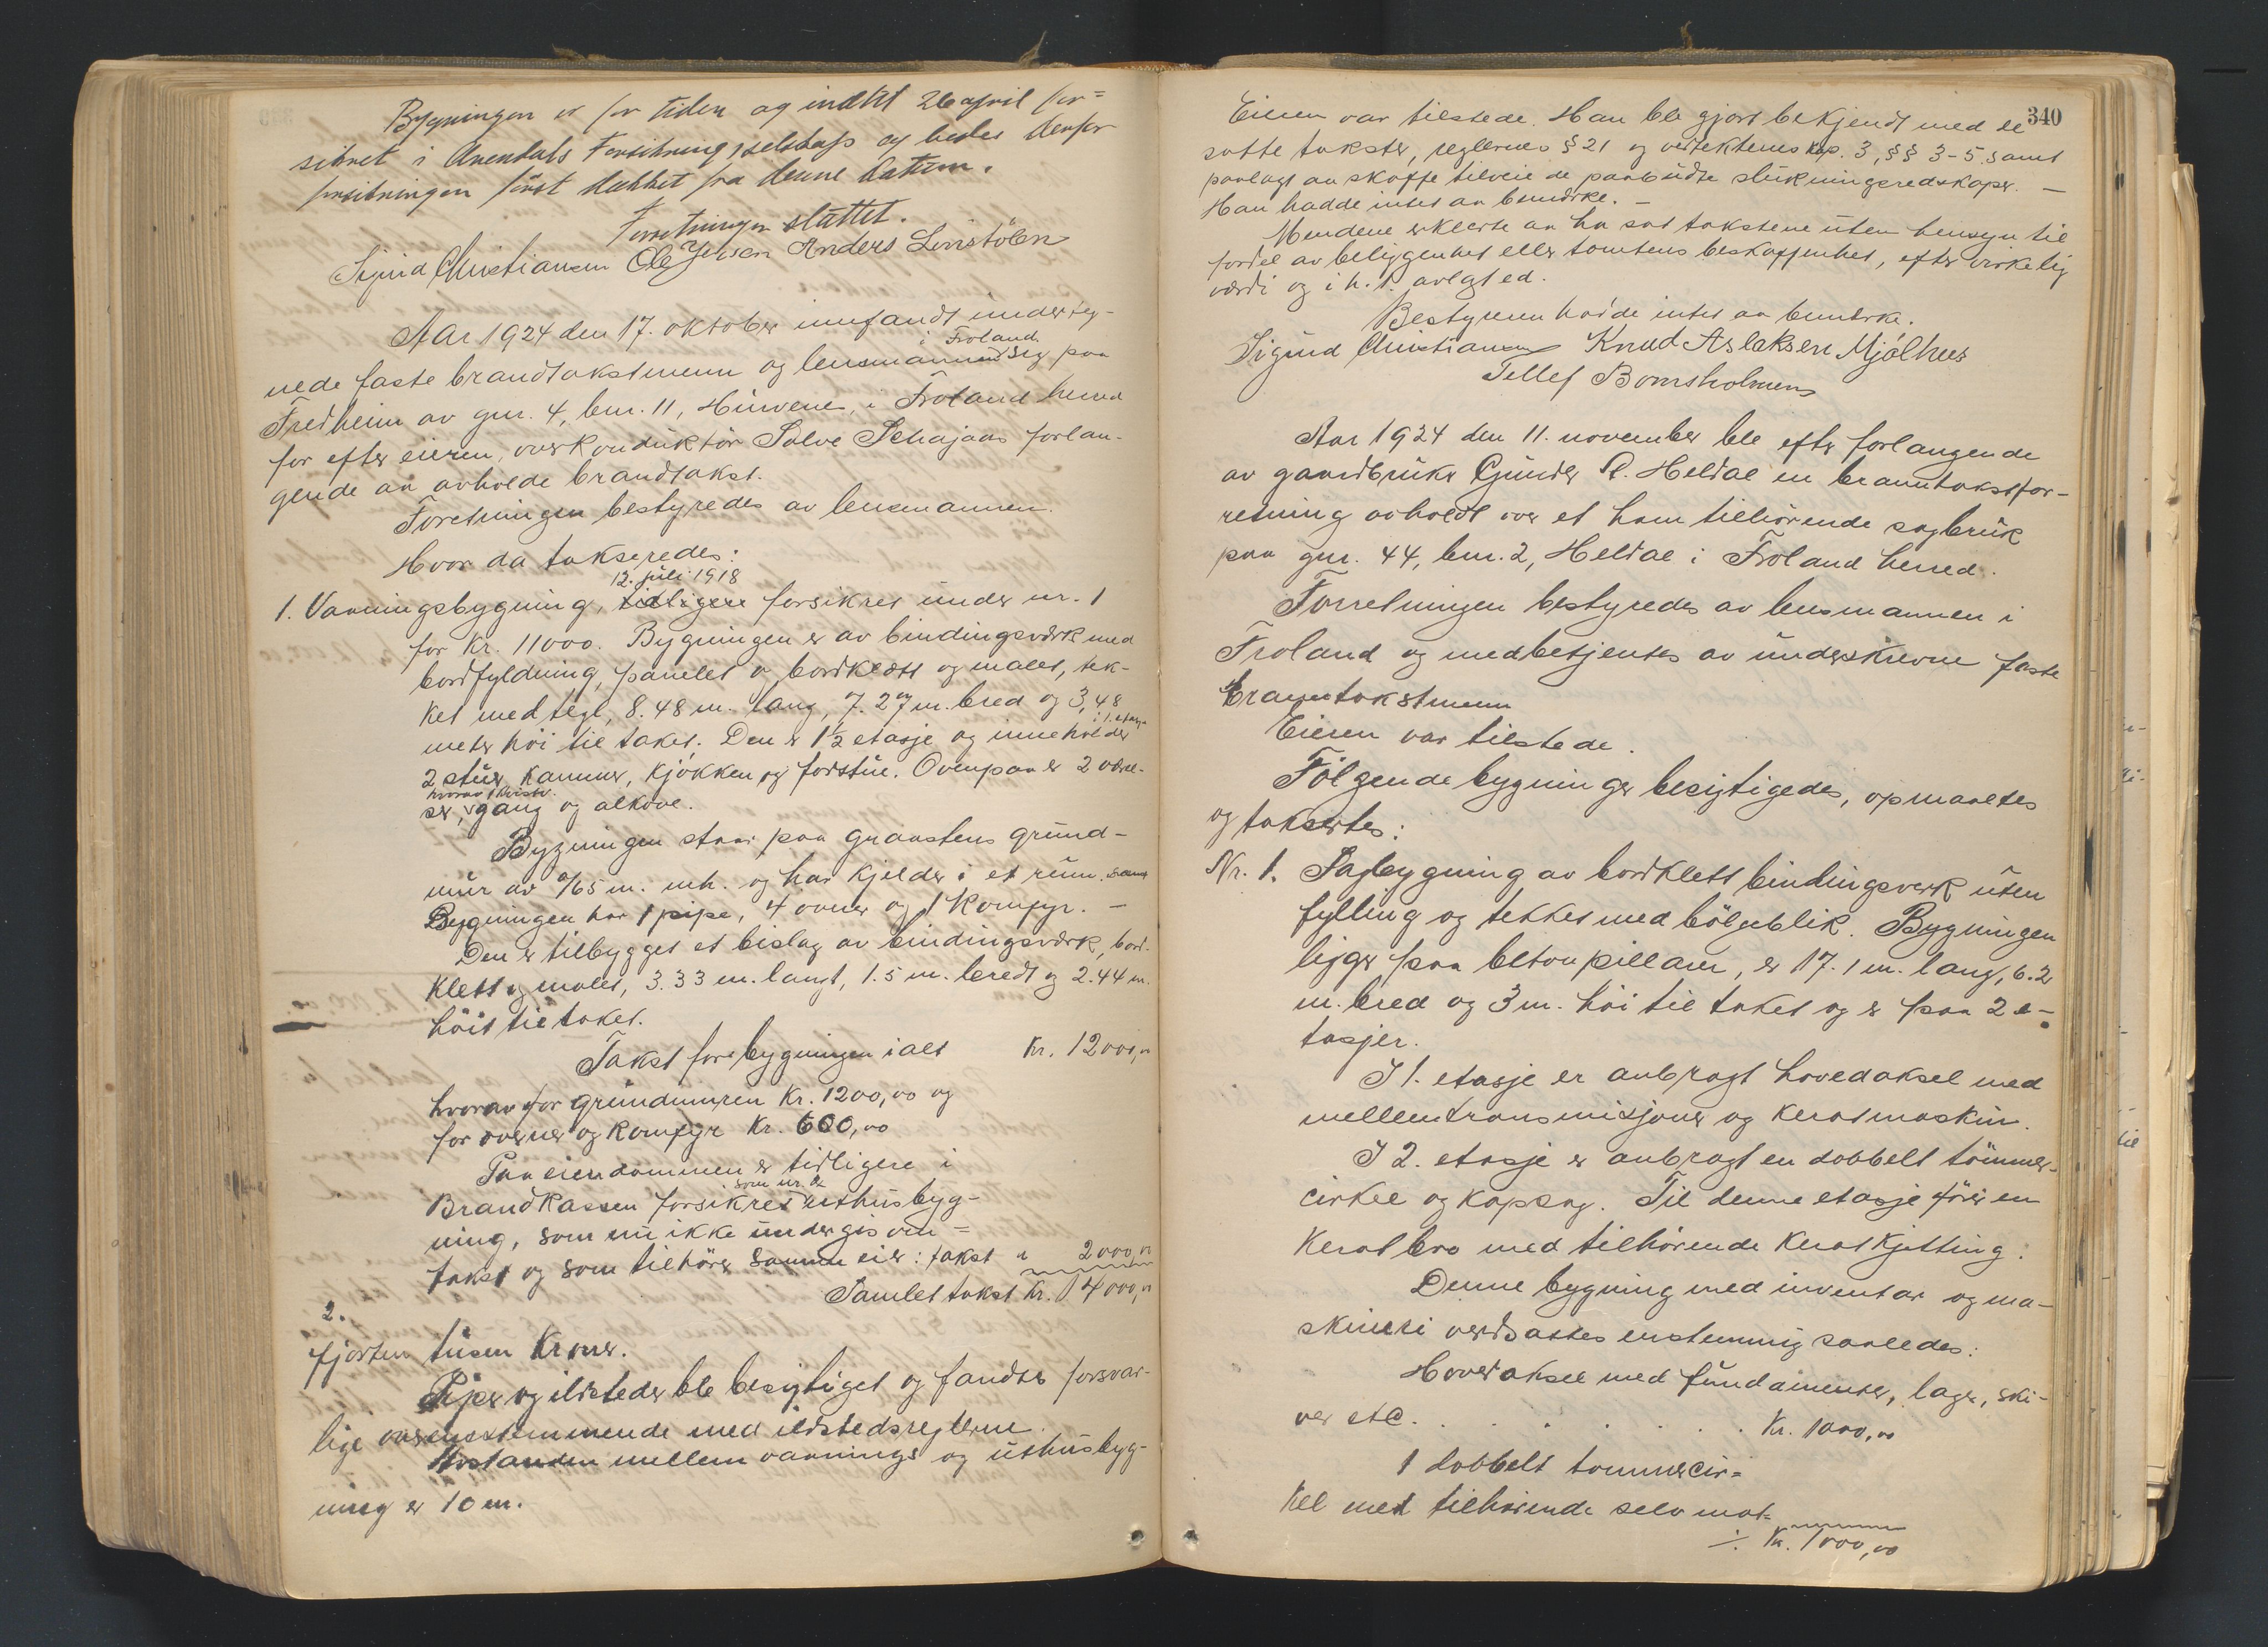 Bygningen er for tiden og indtil 26 april for=
sikret i Arendals Forsikringsselskap og bedes derfor
forsikringen først dækket fra denne datum.
Forretningen sluttet.
Sigurd Christiansen Ole Jensen Anders Lunstølen
Aar 1924 den 17. oktober innfandt underteg-
nede faste brandtakstmenn og lensmannen i Froland sig paa
Fredheim av gnr. 4, bnr. 11, Hurvenes, i Froland herred
for efter eieren, overkonduktör Salve Schajaas forlan-
gende aa avholde brandtakst.
Forretningen bestyredes av lensmannen.
Hvor da takseredes:
12. juli 1918
1. Vaaningsbygning, tidligere forsikret under nr. 1
for kr. 11000. Bygningen er av bindingsverk med
bordfyldning, panelet og bordklætt og malet, tek-
ket med tegl, 8.48 m. lang, 7.27 m. bred og 3,48
meter höi til taket. Den er 1½ etasje og inneholder i 1. etasje
2 stuer, kammer, kjökken og forstue. Ovenpaa er 2 værel-
ser, hvorav 1 kvistv. gang og alkove.
Bygningen staar paa graastens grund-
mur av 0/65 m. mh. og har kjelder i et rum. samt
Bygningen har 1 pipe, 4 ovner og 1 komfyr. —
Den er tilbygget et bislag av bindingsverk, bord-
klett og malet, 3.33 m. langt, 1.5 m. bredt og 2.44 m.
höit til taket.
Takst for bygningen i alt Kr. 12000,00
hvorav for grundmuren Kr. 1200,00 og
for ovner og komfyr Kr. 600,00
Paa eiendommen er tidligere i
Brandkassen forsikret som nr. 2 uthusbyg-
ning, som nu ikke undergis om=
takst og som tilhörer samme eier: takst " 2000,00
Samlet takst Kr. 14000,00
2.
fjorten tusen kroner.
Piper og ildsteder ble besigtiget og fandtes forsvar-
lige overensstemmende med ildstedsreglerne.
Avstanden mellem vaanings og uthusbyg-
ning er 10 m.
340
Eieren var tilstede. Han ble gjort bekjendt med de
satte takster, reglernes § 21 og vedtektenes kap. 3, §§ 3-5 samt
paalagt aa skaffe tilveie de paabudte slukningsredskaper. —
Han hadde intet aa bemerke. —
Mendene erklærte aa ha sat takstene uten hensyn til
fordel av beliggenhet eller tomtens beskaffenhet, efter virkelig
værdi og i h. t. avlagt ed.
Bestyreren havde intet aa bemerke.
Sigurd Christiansen Knud Aslaksen Mjålhus
Tellef Bomsholmen
Aar 1924 den 11. november ble efter forlangende
av gaardbruker Gunder P. Heldal en branntakstfor-
retning avholdt over et ham tilhörende sagbruk
paa gnr. 44, bnr. 2, Heldal i Froland herred.
Forretningen bestyredes av lensmannen i
Froland og medbetjentes av underskrevne faste
branntakstmenn
Eieren var tilstede.
Fölgende bygninger besigtigedes, opmaaltes
og taksertes:
Nr. 1. Sagbygning av bordklett bindingsverk uten
fylling og tekket med bölgeblik. Bygningen
ligger paa beton pillarer, er 17.1 m. lang, 6.2
m. bred og 3 m. höi til taket og er paa 2 e-
tasjer.
I 1. etasje er anbragt hovedaksel med
mellemtransmisjoner og keratmaskin.
I 2. etasje er anbragt en dobbelt tömmer-
cirkel og kapsag. Til denne etasje förer en
Kerat bro med tilhörende Keratkjetting.
Denne bygning med inventar og ma-
skineri verdsattes enstemmig saaledes:
Hovedaksel med fundamenter, lager, ski-
ver etc. . . . . . . . Kr. 1000,00
1 dobbelt tommercir=
kel med tilhörende selvmat=
./. Kr. 1000,00